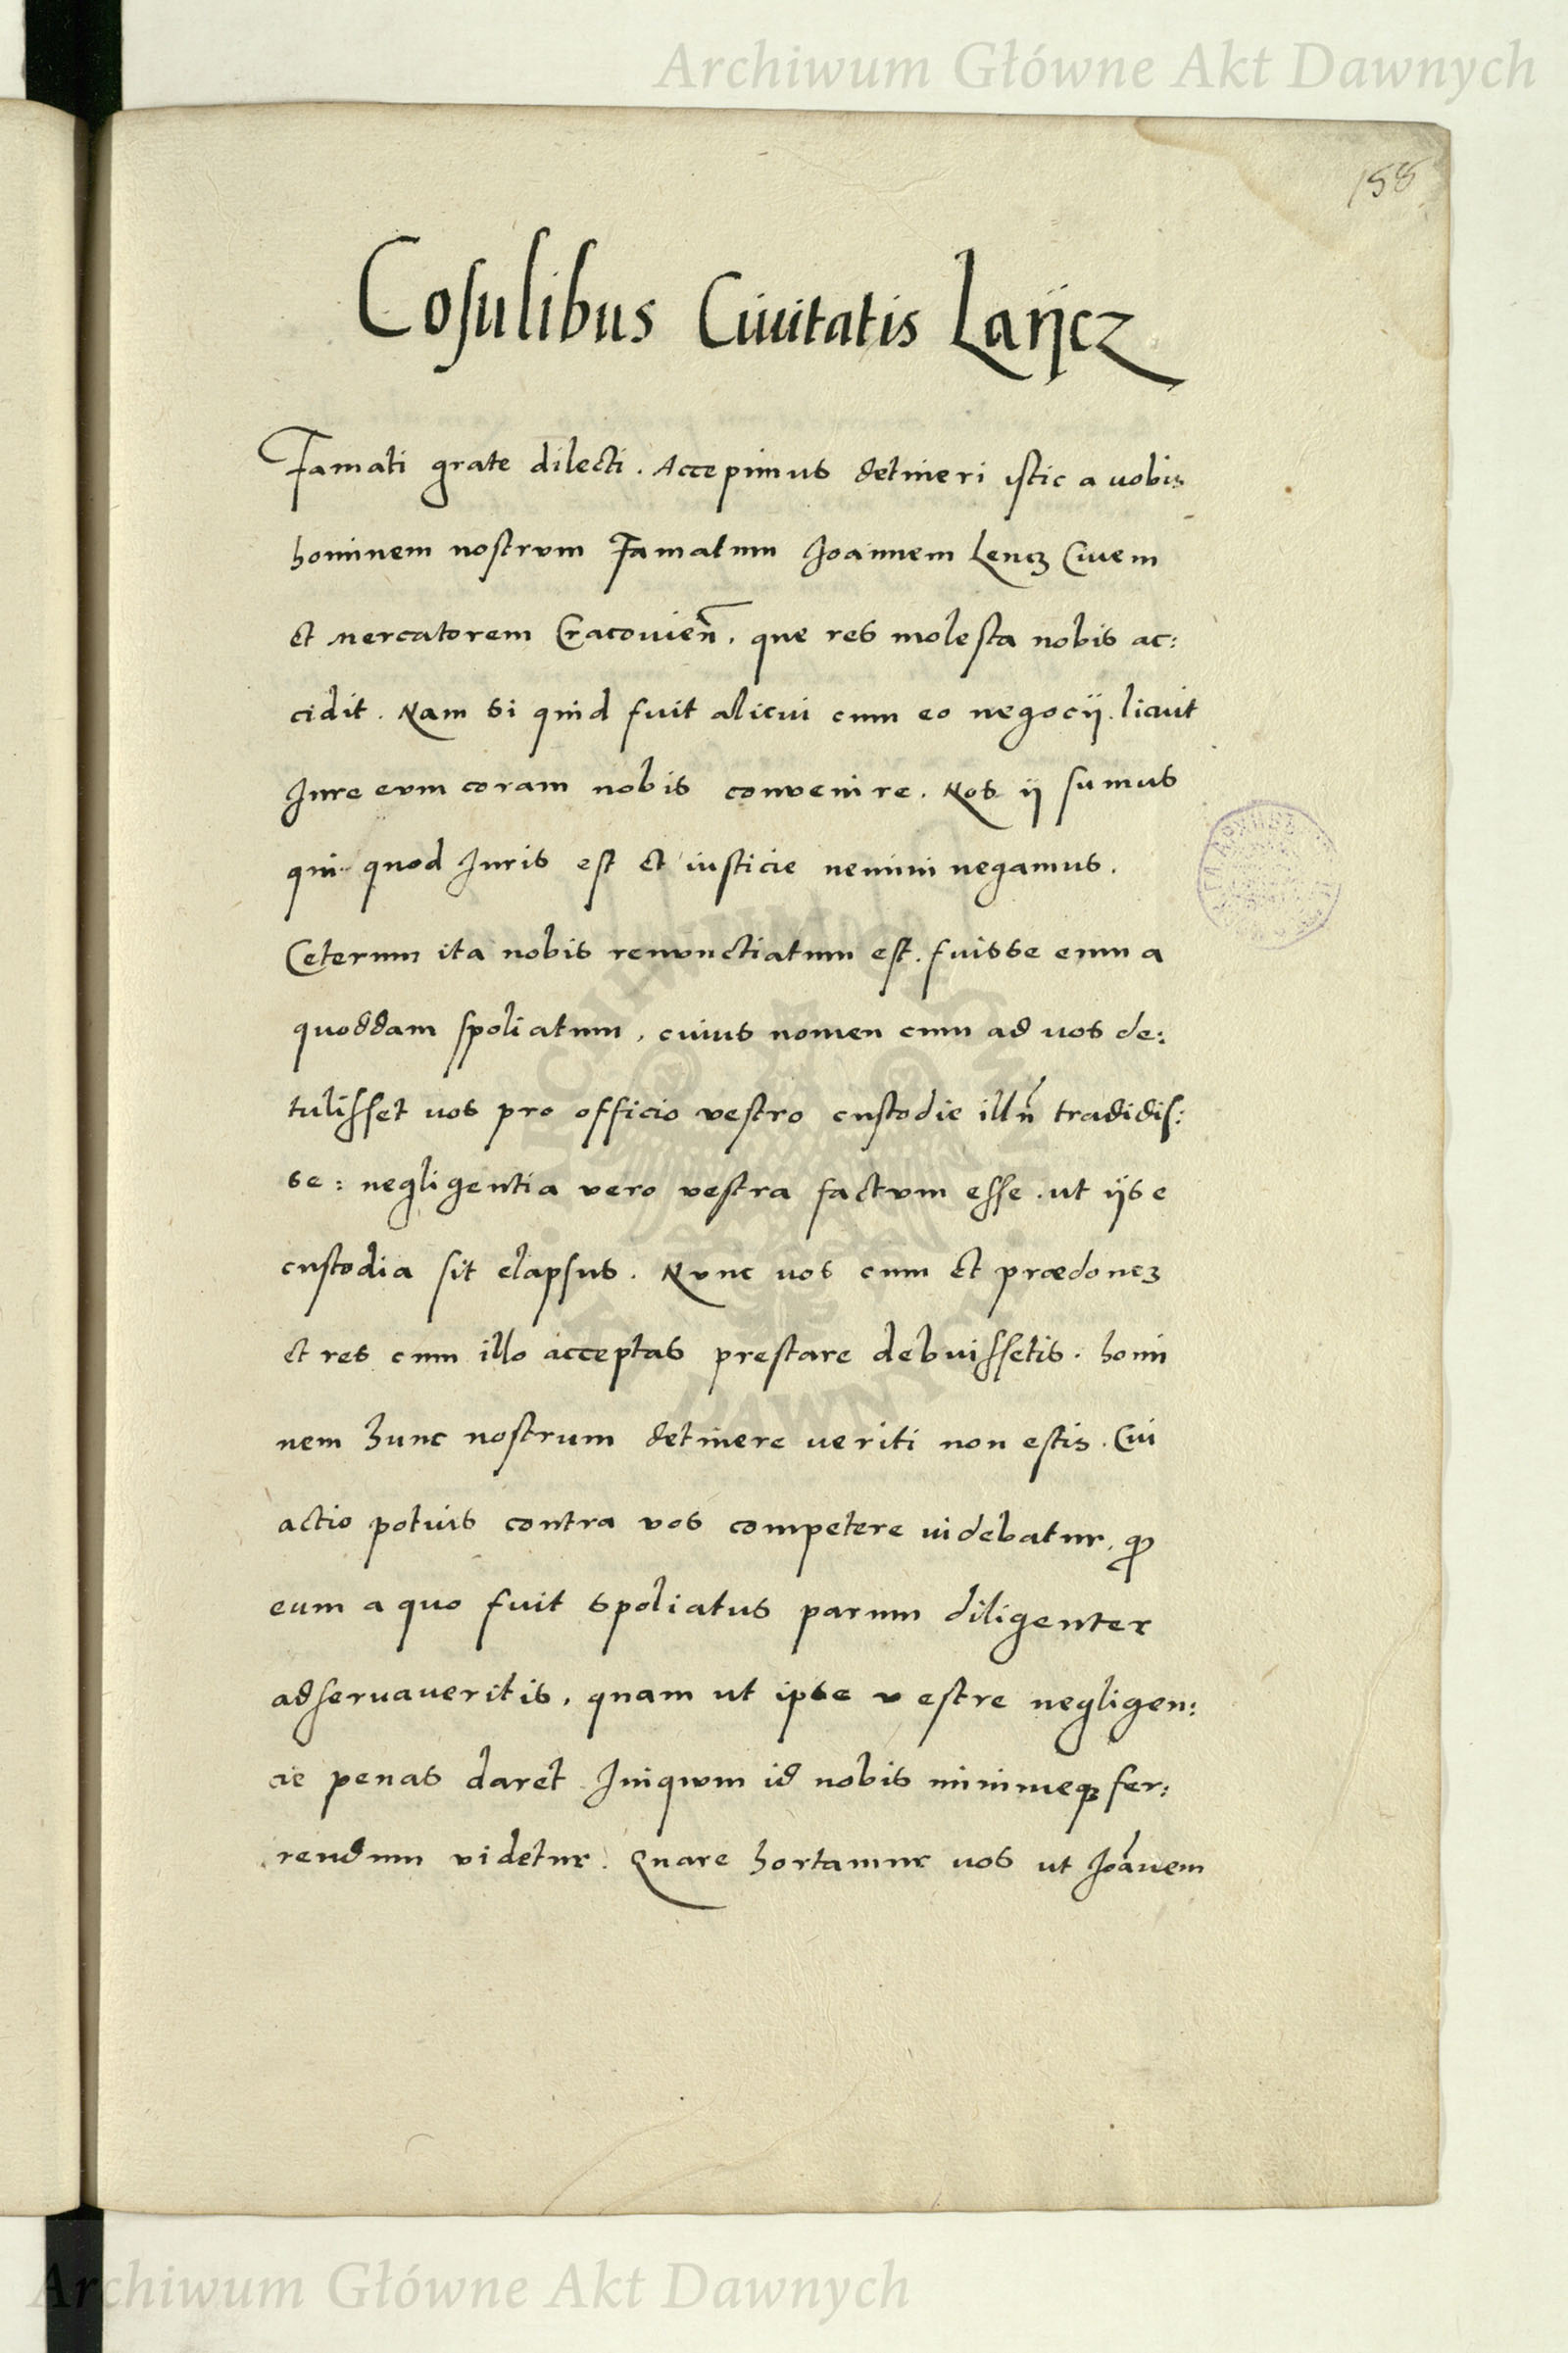 Archiwum Główne Akt Dawnych
158
Cosulibus Ciuitatis Laӱcz
Famati grate dilecti. Accepimus detineri istic a uobis
hominem nostrvm Famatum Joannem Lencz Ciuem
et mercatorem Cracouien̄. que res molesta nobis ac:
cidit. Nam si quid fuit alicui cum eo negocij. licuit
Jure evm coram nobis convenire. Nos ij sumus
qui quod Juris est et iusticie nemini negamus.
Ceterum ita nobis renvnctiatum est. fuisse eum a
quoddam spoliatum, cuius nomen cum ad uos de:
tulisset uos pro officio vestro custodie illn̄ tradidis:
se: negligentia vero vestra factvm esse. ut ijs e
custodia sit elapsus. Nvnc uos cum et prædonez
et res cum illo acceptas prestare debuissetis. homi
nem hunc nostrum detinere ueriti non estis. Cui
actio potuis contra vos competere uidebatur. qđ
eum a quo fuit spoliatus parum diligenter
adseruaueritis, quam ut ipse vestre negligen:
cie penas daret Iniqvvm id nobis minimeqꝫ fer:
rendum videtur. Quare hortamur uos ut Joānem
ARCHIWUM GŁÓWNE AKT DAWNYCH
Archiwum Główne Akt Dawnych